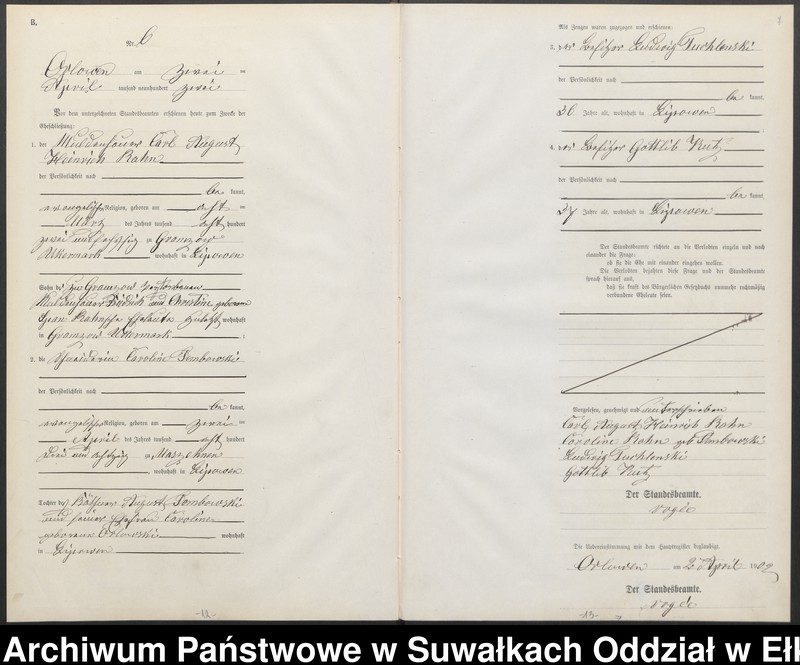 B.
Nr. 6
Orlowen am zwei ten
April tausend neunhundert zwei
Vor dem unterzeichneten Standesbeamten erschienen heute zum Zwecke der
Eheschließung:
1. der Muldenhauer Carl August
Heinrich Rahn
der Persönlichkeit nach
be kannt,
evangelischer Religion, geboren am acht ten
März des Jahres tausend acht hundert
zwei und zu Gramzow
Uckermark, wohnhaft in Lipowen
Sohn des zu Gramzow verstorbenen
Muldenhauer Friedrich und Christine geborene
Rahn'sche Eheleute zuletzt wohnhaft
in Gramzow Uckermark;
2. die Schneiderin Caroline Dombrowski
der Persönlichkeit nach
be kannt,
evangelischer Religion, geboren am zwei ten
April des Jahres tausend acht hundert
drei und achtzig zu
, wohnhaft in Lipowen
Tochter des Käthner August Dombrowski
und seiner Ehefrau Caroline
geborene Orlowski wohnhaft
in Lipowen
-12-
7
Als Zeugen waren zugezogen und erschienen:
3. der Besitzer Ludwig Tuchlinski
der Persönlichkeit nach
be kannt,
30 Jahre alt, wohnhaft in Lipowen
4. der Besitzer Gottlib
der Persönlichkeit nach
be kannt,
37 Jahre alt, wohnhaft in Lipowen
Der Standesbeamte richtete an die Verlobten einzeln und nach
einander die Frage:
ob sie die Ehe mit einander eingehen wollen.
Die Verlobten bejahten diese Frage und der Standesbeamte
sprach hierauf aus,
daß sie kraft des Bürgerlichen Gesetzbuchs nunmehr rechtmäßig
verbundene Eheleute seien.
Vorgelesen, genehmigt und unterschrieben
Carl August Heinrich Rahn
Caroline Rahn geb Dombrowski
Ludwig Tuchlinski
Gottlib
Der Standesbeamte.
Die Uebereinstimmung mit dem Hauptregister beglaubigt.
Orlowen am 2. April 1902
Der Standesbeamte.
-13-
Archiwum Państwowe w Suwałkach Oddział w Ełk